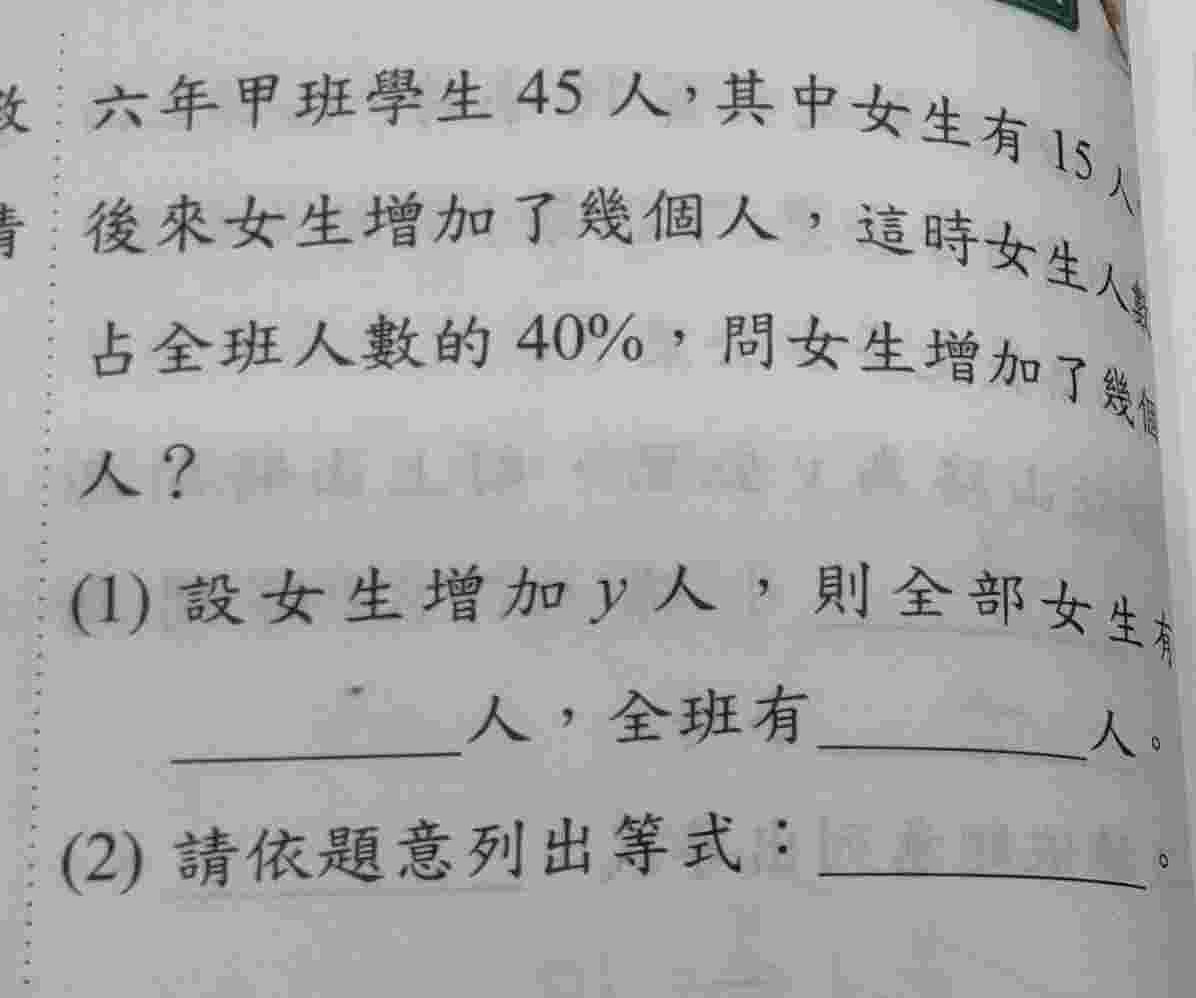 六年甲班學生 45 人，其中女生有 15 人
後來女生增加了幾個人，這時女生人數
占全班人數的 40%，問女生增加了幾個
人？
(1) 設女生增加 y 人，則全部女生有
______人，全班有______人。
(2) 請依題意列出等式：______。